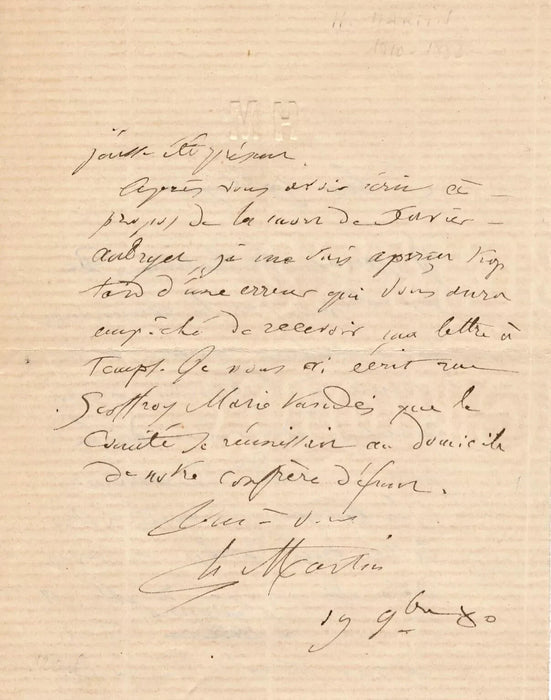 H. MARTIN
1810-1883
MH
j'eusse été présent.
Après vous avoir écrit à
propos de la mort de Xavier
Aubryet je me suis aperçu trop
tard d'une erreur qui vous aura
empêché de recevoir ma lettre à
temps. Je vous ai écrit rue
Geoffroy Marie que le
Comité se réunissait au domicile
de notre confrère défunt.
Tout à vous
H Martin
19 9bre 80